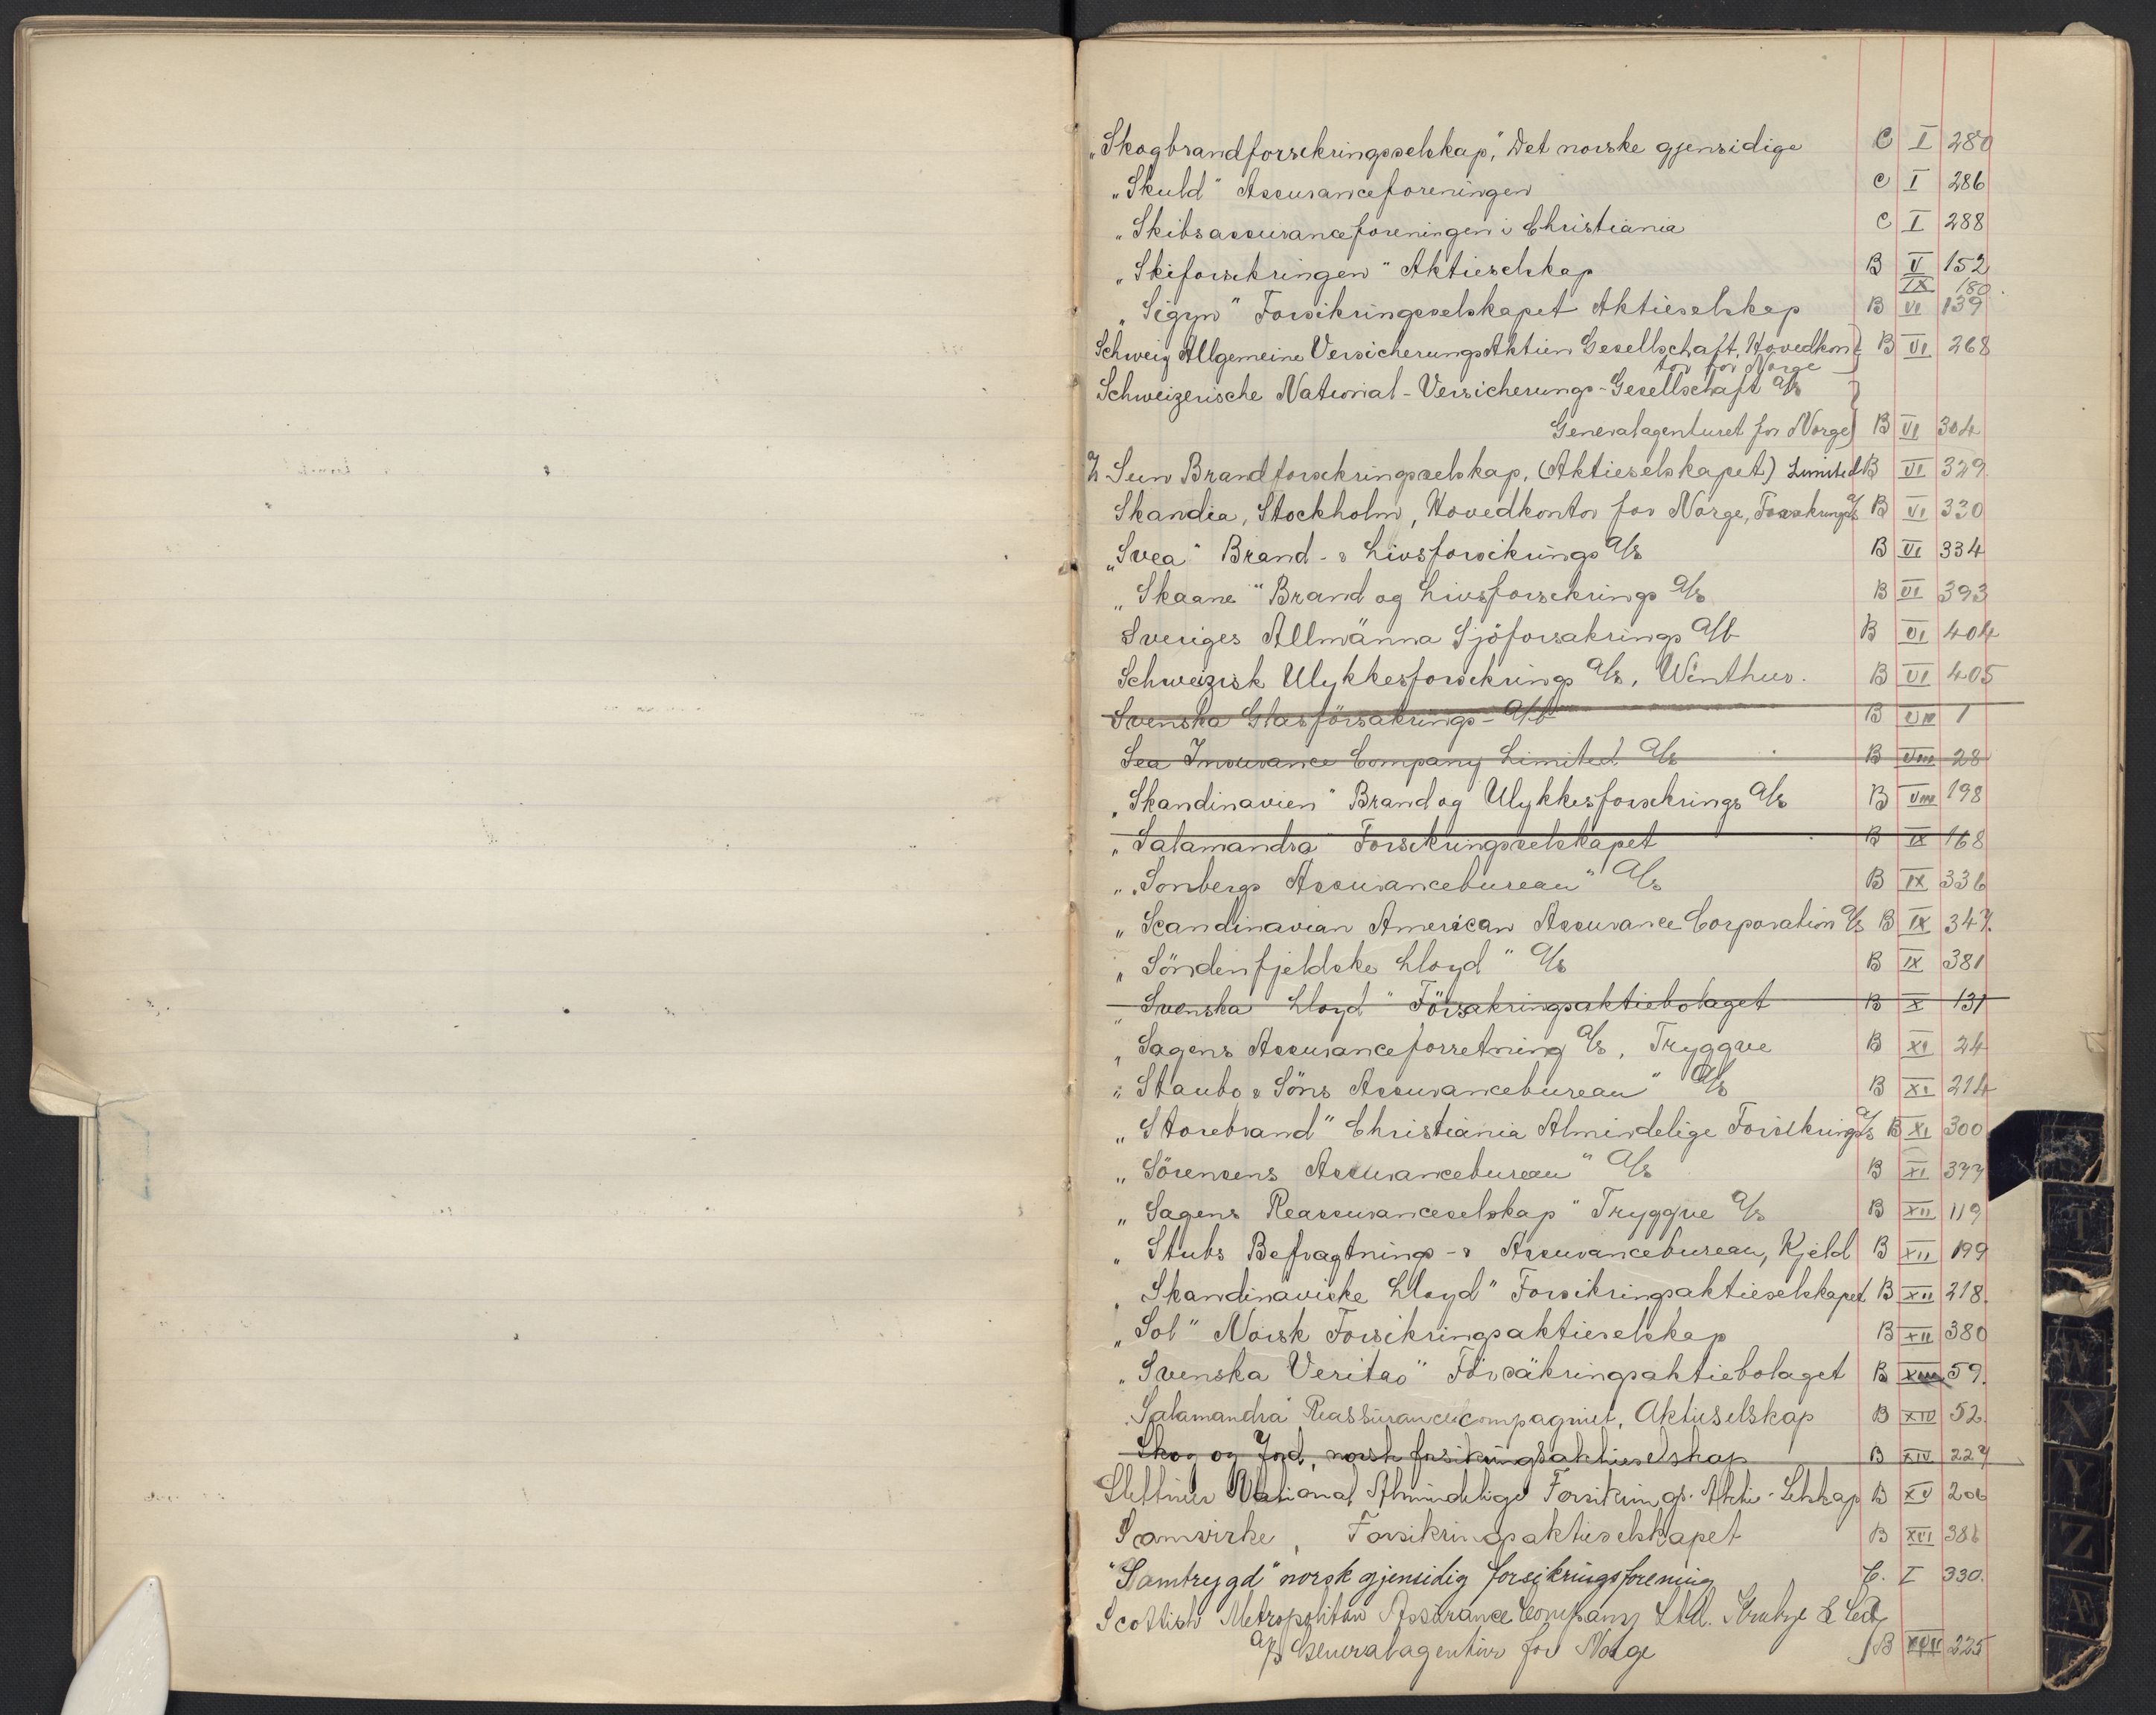 "Skogbrandforsekringsselskap," Det norske gjensidige C I 280
"Skuld" Assuranceforeningen C I 286
"Skibsassuranceforeningen i Christiania C I 288
"Skiforsikringen" Aktieselskap B V 152
IX 180.
"Sigyn" Forsikringsselskapet Aktieselskap B VI 139
Schweiz Allgemeine Versicherungs Aktien Gesellschaft, Hovedkon- B VI 268
tor for Norge
Schweizerische National-Versicherungs-Gesellschaft A/S
Generalagenturet for Norge B VI 304
Sun Brandforsekringsselskap, (Aktieselskapet) Limited B VI 329.
Skandia, Stockholm, Hovedkontor for Norge, Forsekrings A/S B VI 330
"Svea" Brand- & Livsforsikrings A/S B VI 334
"Skaane" Brand og Livsforsekrings A/S B VI 393
Sveriges Allmänna Sjöforsakrings A/b B VI 404
Schweizisk Ulykkesforsekrings A/S, Winthur. B VI 405
Svenska Glasförsäkrings-A/b B VIII 1
Sea Insurance Company Limited A/S B VIII 28
"Skandinavien" Brand og Ulykkesforsekrings A/S B VIII 198
"Salamandra" Forsekringsselskapet B IX 168
"Sonbergs Assurancebureau" A/S B IX 336
"Scandinavian American Assurance Corporation A/S B IX 347.
"Söndenfjeldske Lloyd" A/S B IX 381
"Svenska Lloyd" Försakringsaktiebolaget B X 131
"Sagens Assuranceforretning A/S, Tryggve B XI 24
"Staubo & Söns Assurancebureau" A/S B XI 214
"Storebrand" Christiania Almindelige Forsekrings A/S B XI 300
"Sörensens Assurancebureau" A/S B XI 377
"Sagens Reassuranceselskap" Tryggve A/S B XII 119
"Stubs Befragtnings- & Assurancebureau, Kjeld B XII 199
"Skandinaviske Lloyd" Forsikringsaktieselskapet B XII 218.
"Sol" Norsk Forsikringsaktieselskap B XII 380
"Svenska Veritas" Försäkringsaktiebolaget B XIII 59.
"Salamandra" Reassurancecompagniet, Aktieselskap B XIV 52.
Skog og Jord, norsk forsikringsaktieselskap B XIV 227
Stettiner National Almindelige Forsikrings-Aktie-Selskap B XV 206
Samvirke, Forsikringsaktieselskapet B XVI 386
"Samtrygd" norsk gjensidig forsikringsforening C. I 330.
Scottish Metropolitan Assurance Company Ltd.
A/S Generalagentur for Norge B XVII 225
T
W
X
Y
Z
Æ